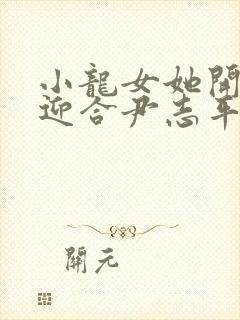 小龍女她開
迎合尹志平
開元